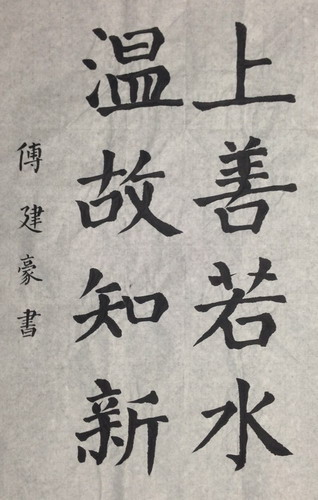 上善若水
温故知新
傅建豪書